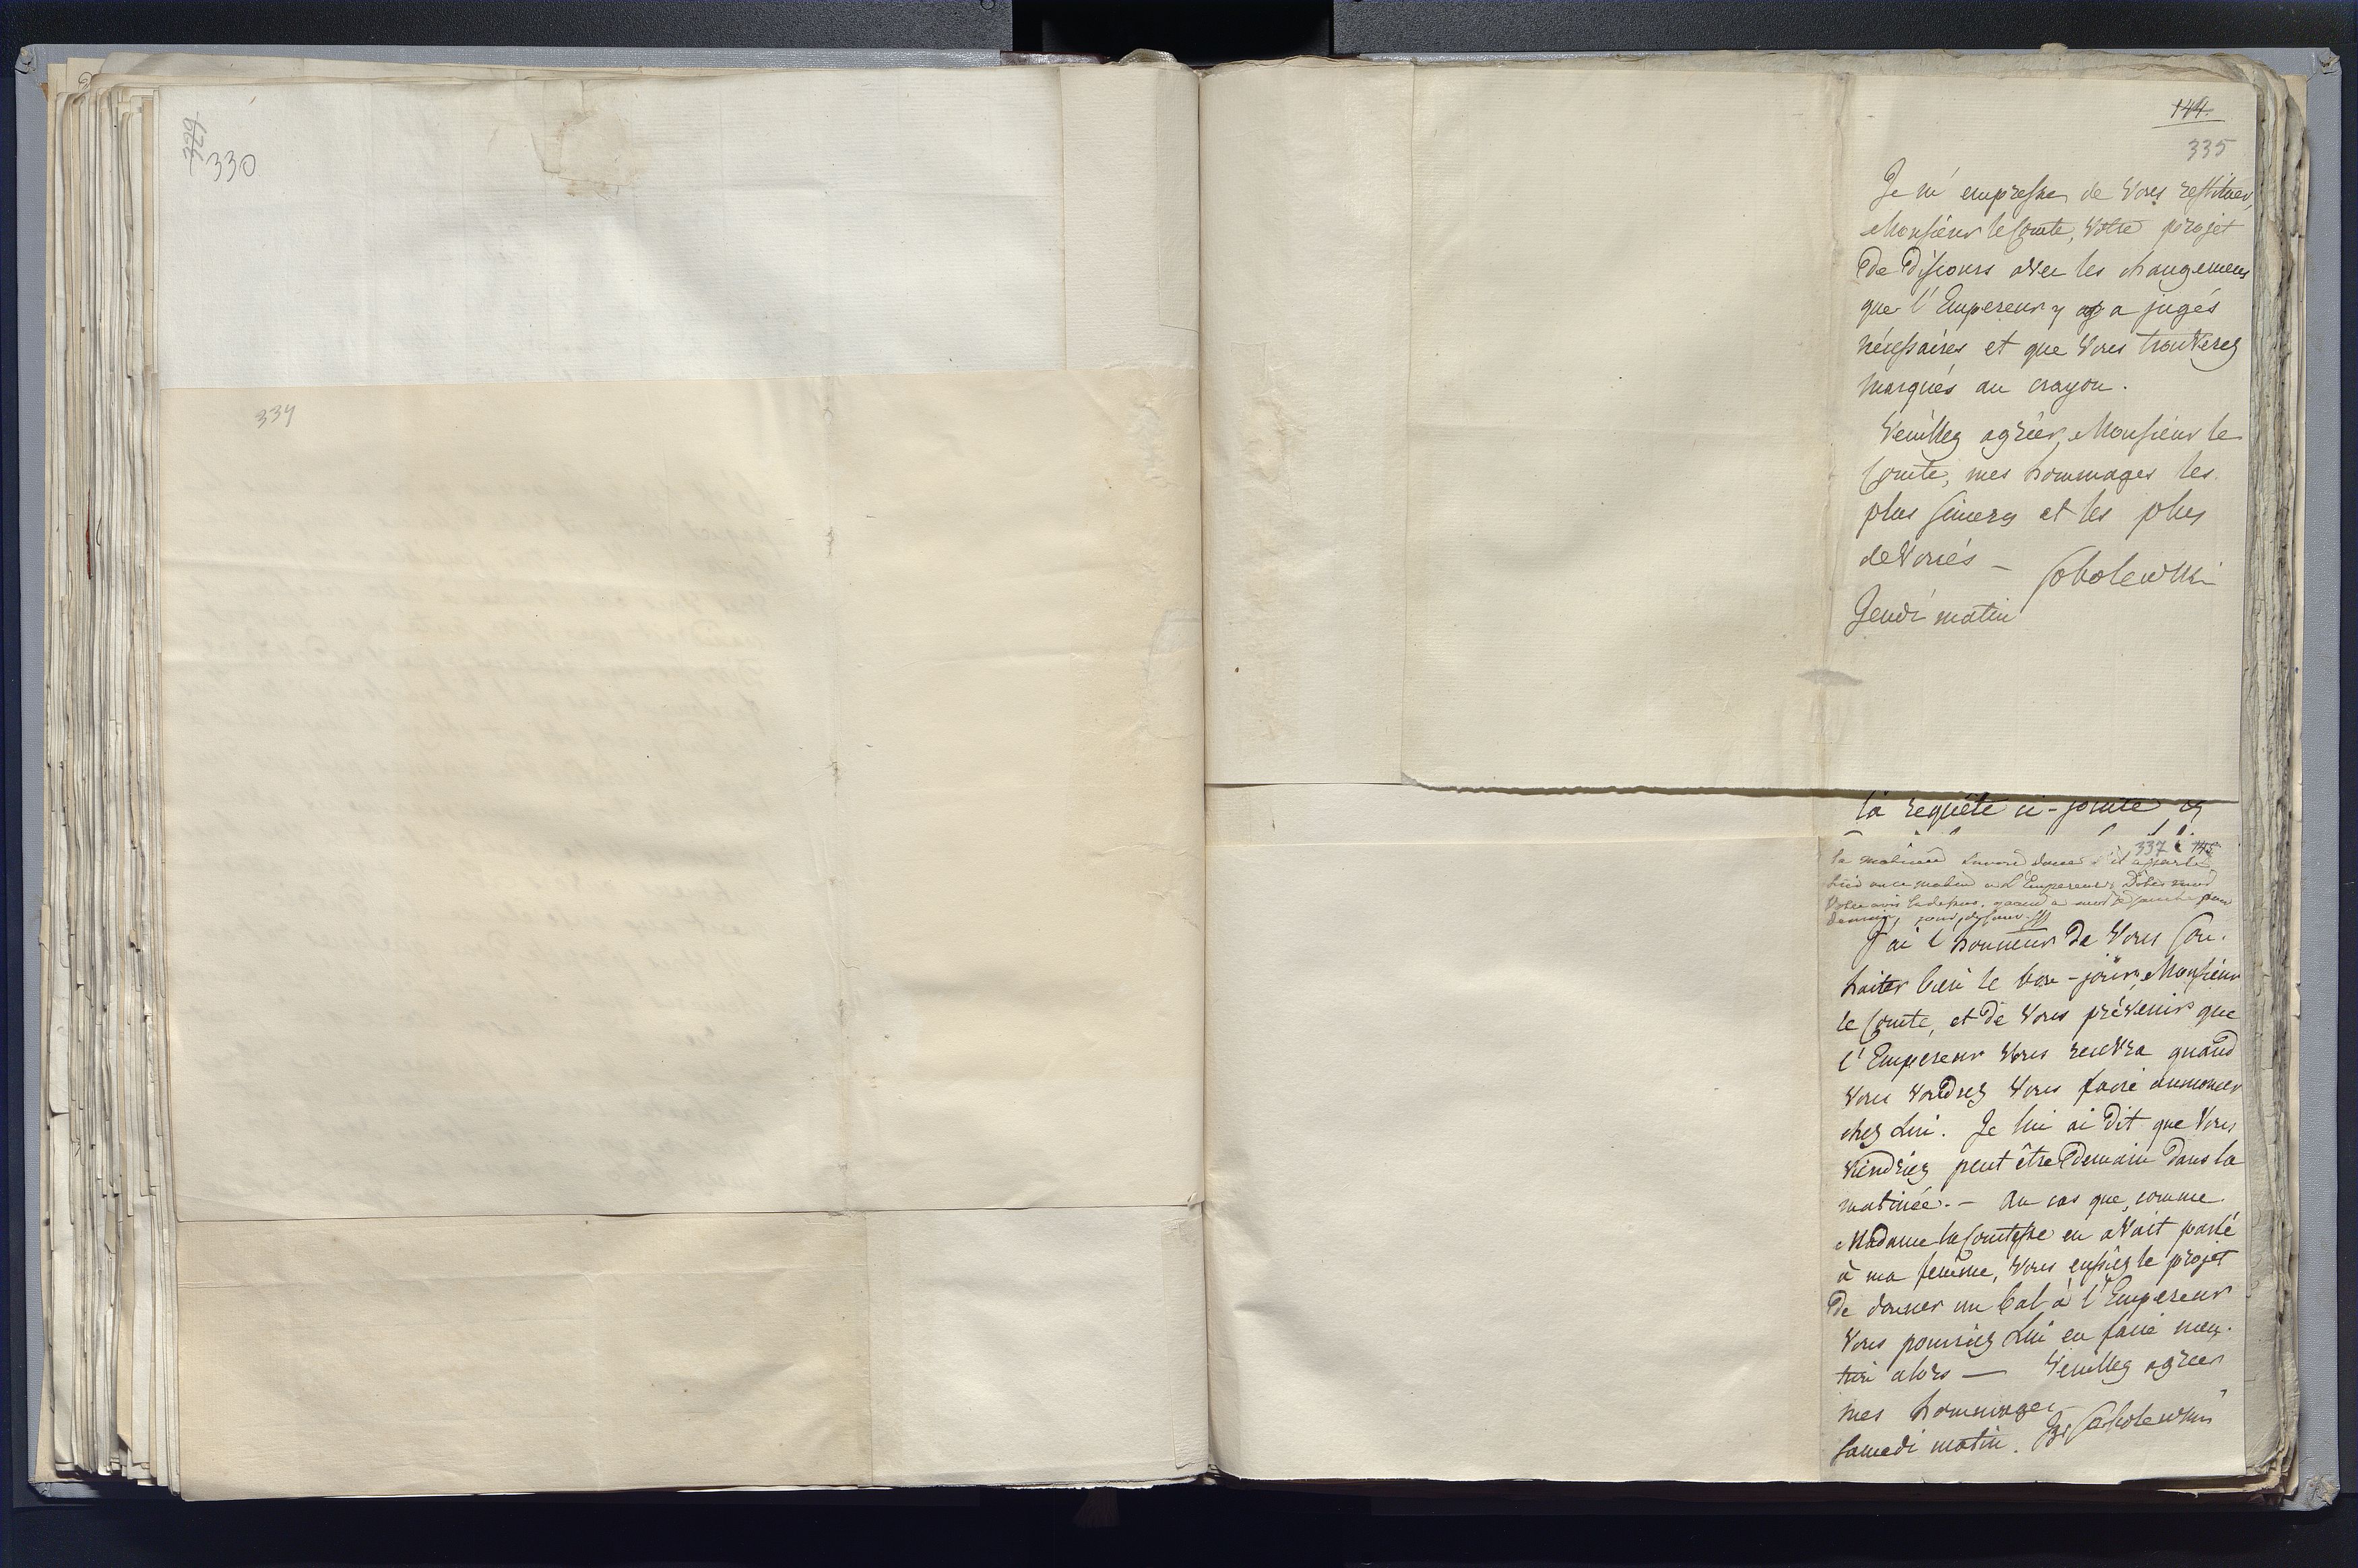 329
330
334
144.
335
Je m'empresse de Vous restituer,
Monsieur le Comte, Votre projet
de discours avec les changemens
que l'Empereur y a jugés
nécessaires et que Vous trouverez
marqués au crayon.
Veuillez agréer, Monsieur le
Comte, mes hommages les
plus sincères et les plus
dévoués —
Sobolewski
Jeudi matin
la requête ci-jointe
337
145
la matinée
matin à l'Empereur,
Votre avis là dessus. quand à moi
demain,
J'ai l'honneur de Vous sou-
haiter bien le bon-jour, Monsieur
le Comte, et de Vous prévenir que
l'Empereur Vous recevra quand
Vous voudrez Vous faire annoncer
chez Lui. Je lui ai dit que Vous
viendriez peut être demain dans la
matinée. — Au cas que, comme
Madame la Comtesse en avait parlé
à ma femme, Vous eussiez le projet
de donner un bal à l'Empereur
Vous pourriez Lui en faire men-
tion alors — Veuillez agréer
mes hommages
Sobolewski
Samedi matin.